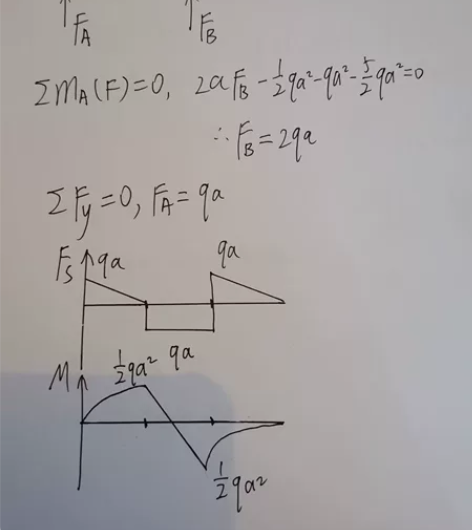 F_A F_B
Σm_A(F)=0, 2aF_B - 1/2 qa² - qa² - 5/2 qa² = 0
∴ F_B = 2qa
ΣF_y = 0, F_A = qa
F_s qa qa
qa
M 1/2 qa²
1/2 qa²